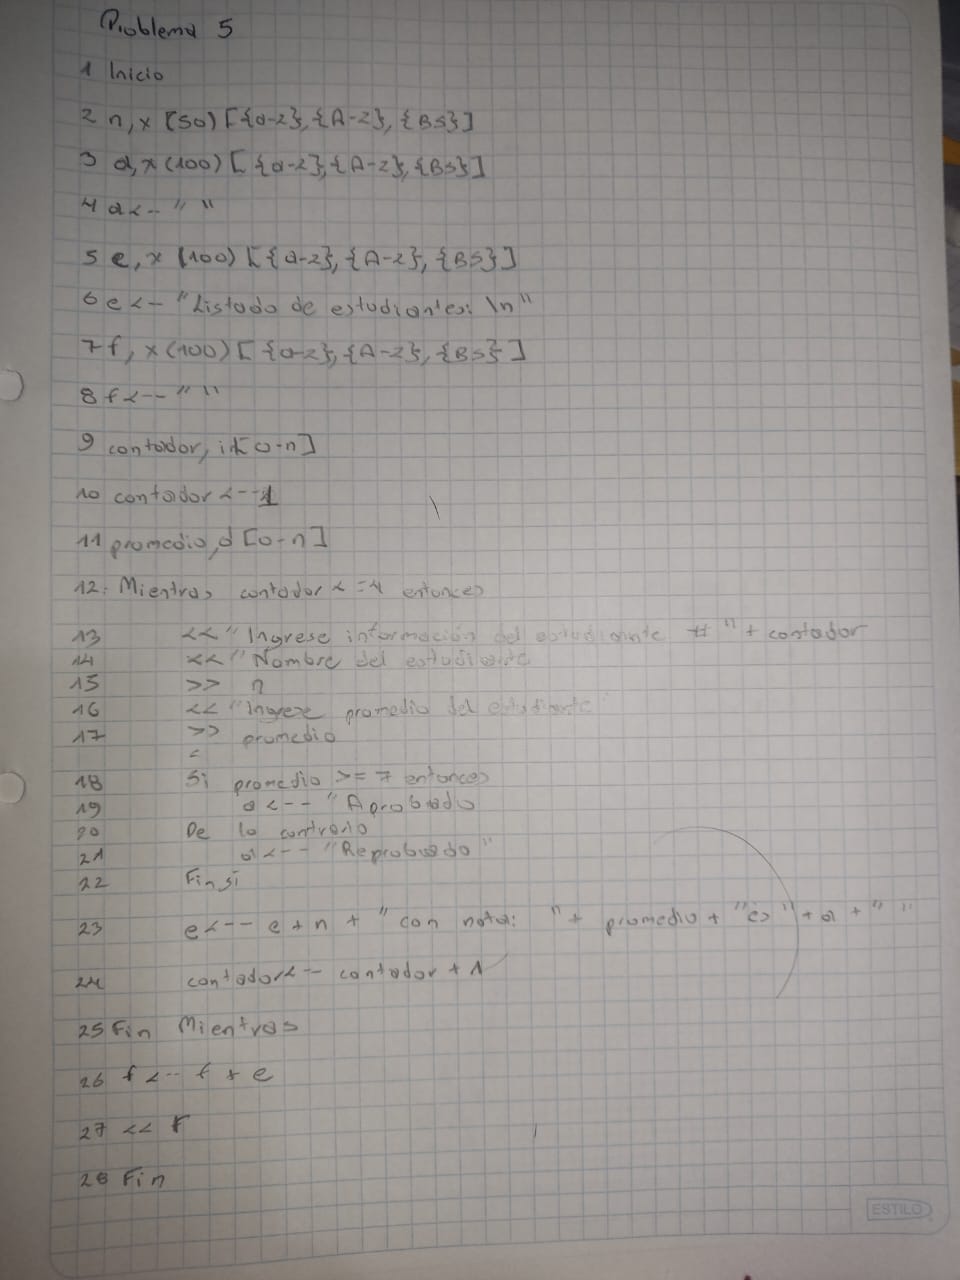 Problema 5
1 Inicio
2 n, x (50) [{a-z}, {A-Z}, {BS}]
3 a, x (100) [{a-z}, {A-Z}, {BS}]
4 a <-- " "
5 e, x (100) [{a-z}, {A-Z}, {BS}]
6 e <-- "Listado de estudiantes: \n"
7 f, x (100) [{a-z}, {A-Z}, {BS}]
8 f <-- " "
9 contador, i [0-n]
10 contador <-- 1
11 promedio, d [0-n]
12: Mientras contador <=4 entonces
13 << "Ingrese información del estudiante #" + contador
14 << "Nombre del estudiante
15 >> n
16 << "Ingrese promedio del estudiante
17 >> promedio
18 Si promedio >= 7 entonces
19 a <-- "Aprobado
20 De lo contrario
21 a <-- "Reprobado"
22 Fin si
23 e <-- e + n + " con nota: " + promedio + "es" + a + " "
24 contador <-- contador + 1
25 Fin Mientras
26 f <-- f + e
27 << f
28 Fin
ESTILO